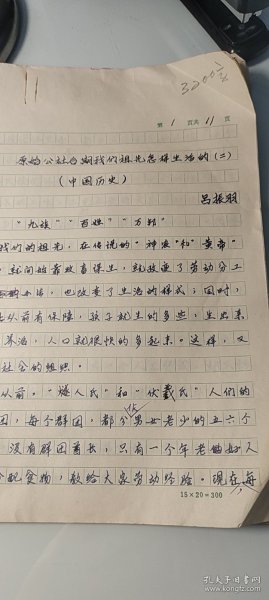 3200字
第 1 页共 11 页
原始公社时期我们祖先怎样生活的（二）
（中国历史）
吕振羽
“九族”“百姓”“万邦”
我们的祖先，在传说的“神农”和“黄帝”
就开始畜牧事谋生，就改变了劳动分工
办法，也改变了生活的样式；同时，
从前有保障，孩子就生的多些，生出来
养活，人口就很快的多起来。这样，又
社会的组织。
从前。“燧人氏”和“伏羲氏”人们的
团，每个群团，都公男女老少的五六个
没有群团首长，只有一个年老的好人
分配食物，教给大家劳动经验。现在每，
15×20=300
孔夫子旧书网